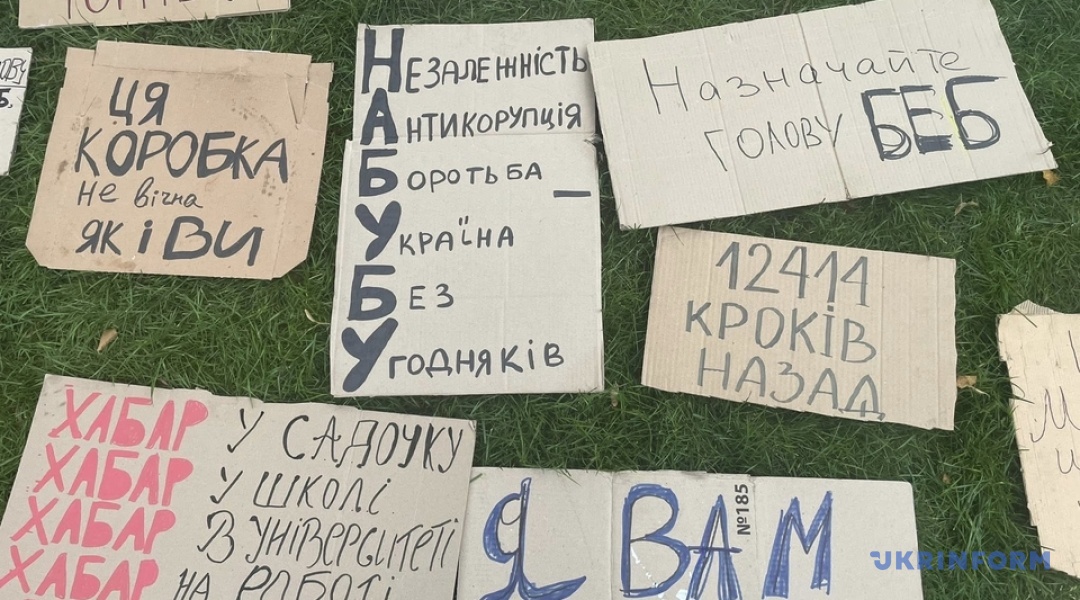 ЦЯ
КОРОБКА
не вічна
ЯК І ВИ
НЕЗАЛЕЖНІСТЬ
АНТИКОРУПЦІЯ
БОРОТЬБА _
УКРАЇНА
БЕЗ
УГОДНЯКІВ
Назначайте
ГОЛОВУ БЕБ
12414
КРОКІВ
НАЗАД
ХАБАР У САДОЧКУ
ХАБАР У ШКОЛІ
ХАБАР В УНІВЕРСИТЕТІ
ХАБАР НА РОБОТІ
Я ВАМ
№185
UKRINFORM